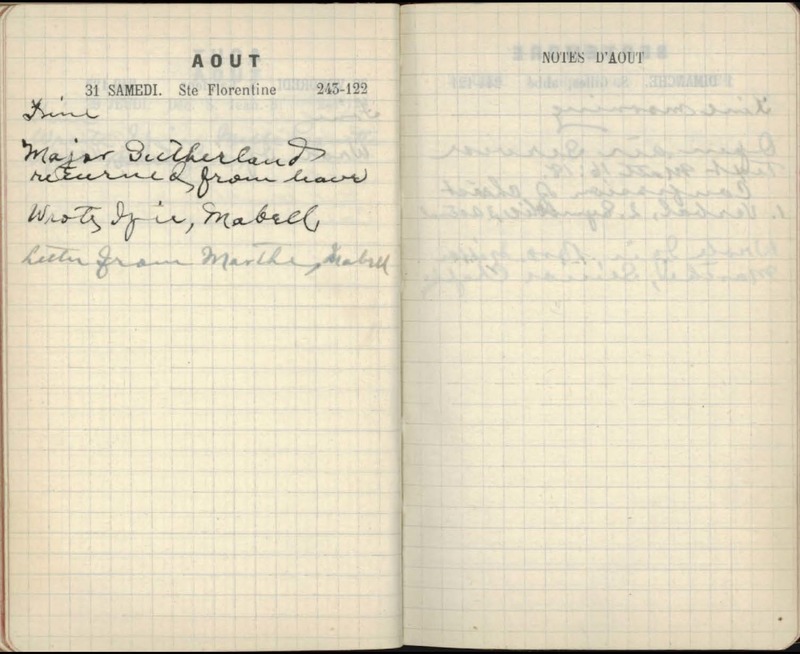 AOUT
31 SAMEDI. Ste Florentine 243-122
Fine
Major Sutherland
returned from leave
Wrote Izie, Mabell,
Letter from Martha, Mabell
NOTES D'AOUT